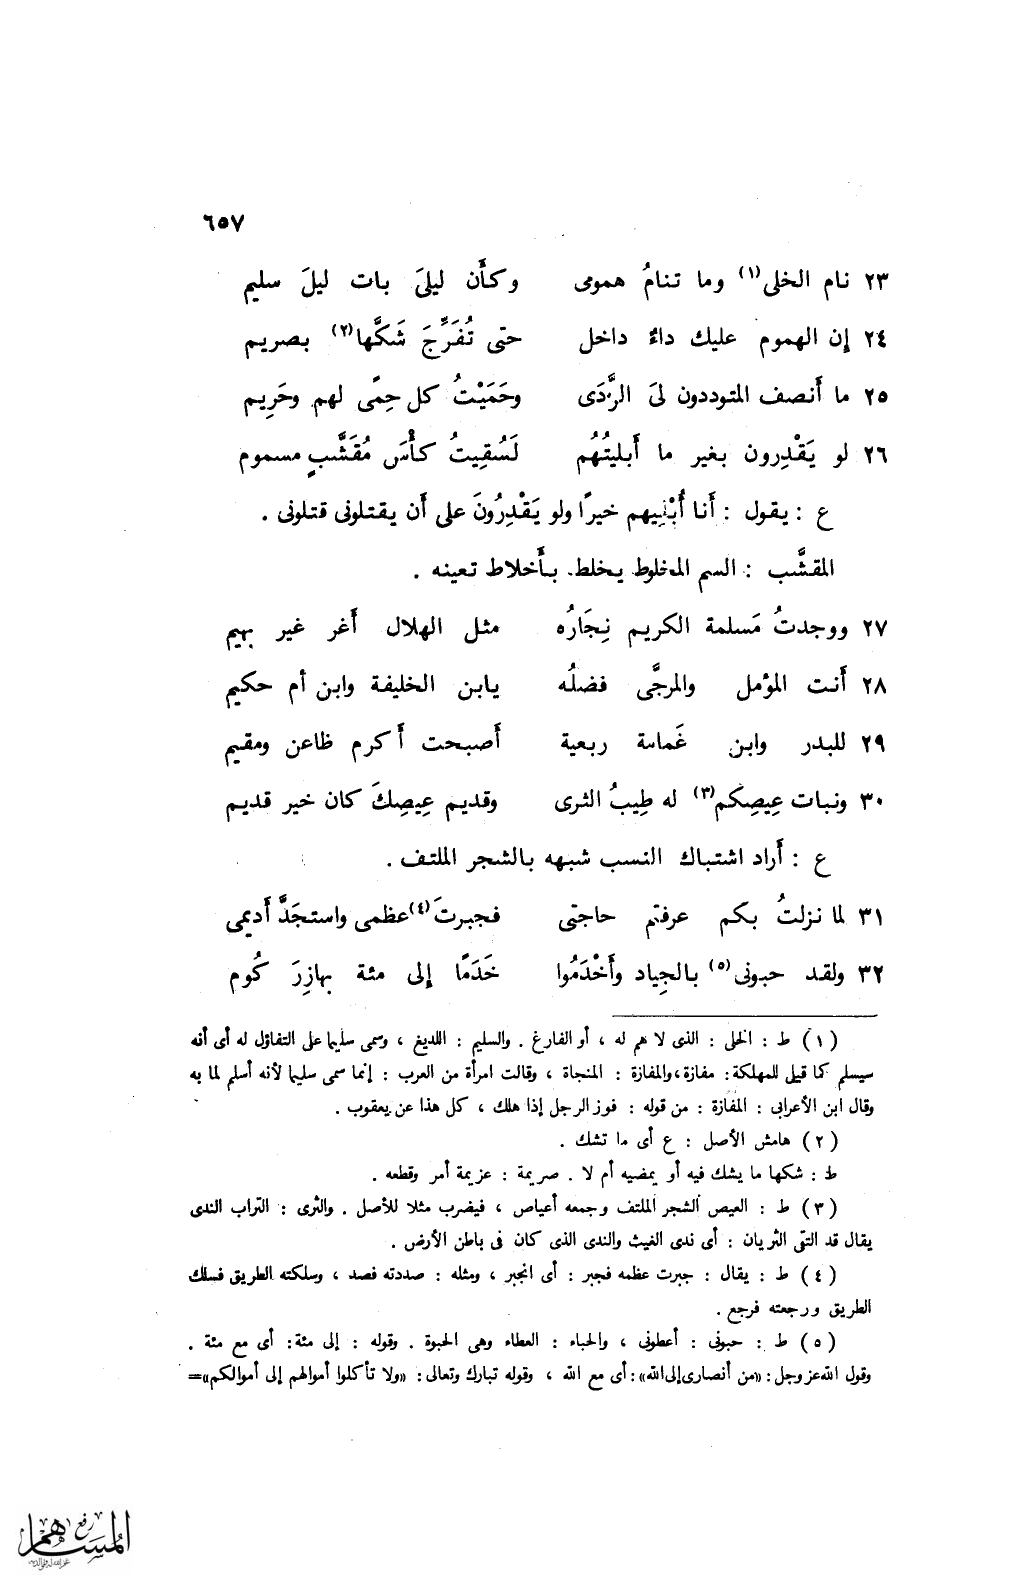 ٦٥٧
٢٣ نام الخلى(١) وما تنامُ همومى وكأَن ليلىَ بات ليلَ سليم
٢٤ إن الهموم عليك داءٌ داخل حتى تُفَرِّجَ شَكَّها(٢) بصريم
٢٥ ما أَنصف المتوددون لىَ الرَّدَى وحَمَيْتُ كل حِمًى لهم وحَرِيم
٢٦ لو يَقْدِرون بغير ما أَبليتُهُم لَسُقِيتُ كأْسَ مُقَشَّبٍ مسموم
ع : يقول : أَنا أُبْلِيهم خيرًا ولو يَقْدِرُونَ على أَن يقتلونى قتلونى .
المقشَّب : السم المخلوط يخلط بأَخلاط تعينه .
٢٧ ووجدتُ مَسلمة الكريم نِجَارُه مثل الهلال أَغر غير بهيم
٢٨ أَنت المؤمل والمرجَّى فضلُه يابن الخليفة وابن أم حكيم
٢٩ للبدر وابن غَمامة ربعية أَصبحت أَكرم ظاعن ومقيم
٣٠ ونبات عِيصِكم(٣) له طِيبُ الثرى وقديم عِيصِكَ كان خير قديم
ع : أَراد اشتباك النسب شبهه بالشجر الملتف .
٣١ لما نزلتُ بكم عرفتم حاجتى فجبرتَ(٤) عظمى واستجَدَّ أَديمى
٣٢ ولقد حبونى(٥) بالجِياد وأَخْدَمُوا خَدَمًا إلى مئة بهازِرَ كُوم
(١) ط : الخلى : الذى لا هم له ، أو الفارغ . والسليم : اللديغ ، وسمى سليما على التفاؤل له أى أنه
سيسلم كما قيل للمهلكة: مفازة، والمفازة : المنجاة ، وقالت امرأة من العرب : إنما سمى سليما لأنه أسلم لما به
وقال ابن الأعرابى : المفازة : من قوله : فوز الرجل إذا هلك ، كل هذا عن يعقوب .
(٢) هامش الأصل : ع أى ما تشك .
ط : شكها ما يشك فيه أو يمضيه أم لا . صريمة : عزيمة أمر وقطعه .
(٣) ط : العيص الشجر الملتف وجمعه أعياص ، فيضرب مثلا للأصل . والثرى : التراب الندى
يقال قد التقى الثريان : أى ندى الغيث والندى الذى كان فى باطن الأرض .
(٤) ط : يقال : جبرت عظمه فجبر : أى انجبر ، ومثله : صددته فصد ، وسلكته الطريق فسلك
الطريق ورجعته فرجع .
(٥) ط : حبونى : أعطونى ، والحباء : العطاء وهى الحبوة . وقوله : إلى مئة: أى مع مئة .
وقول الله عز وجل : «من أنصارى إلى الله» : أى مع الله ، وقوله تبارك وتعالى: «ولا تأكلوا أموالهم إلى أموالكم»=
رفع
المساهم